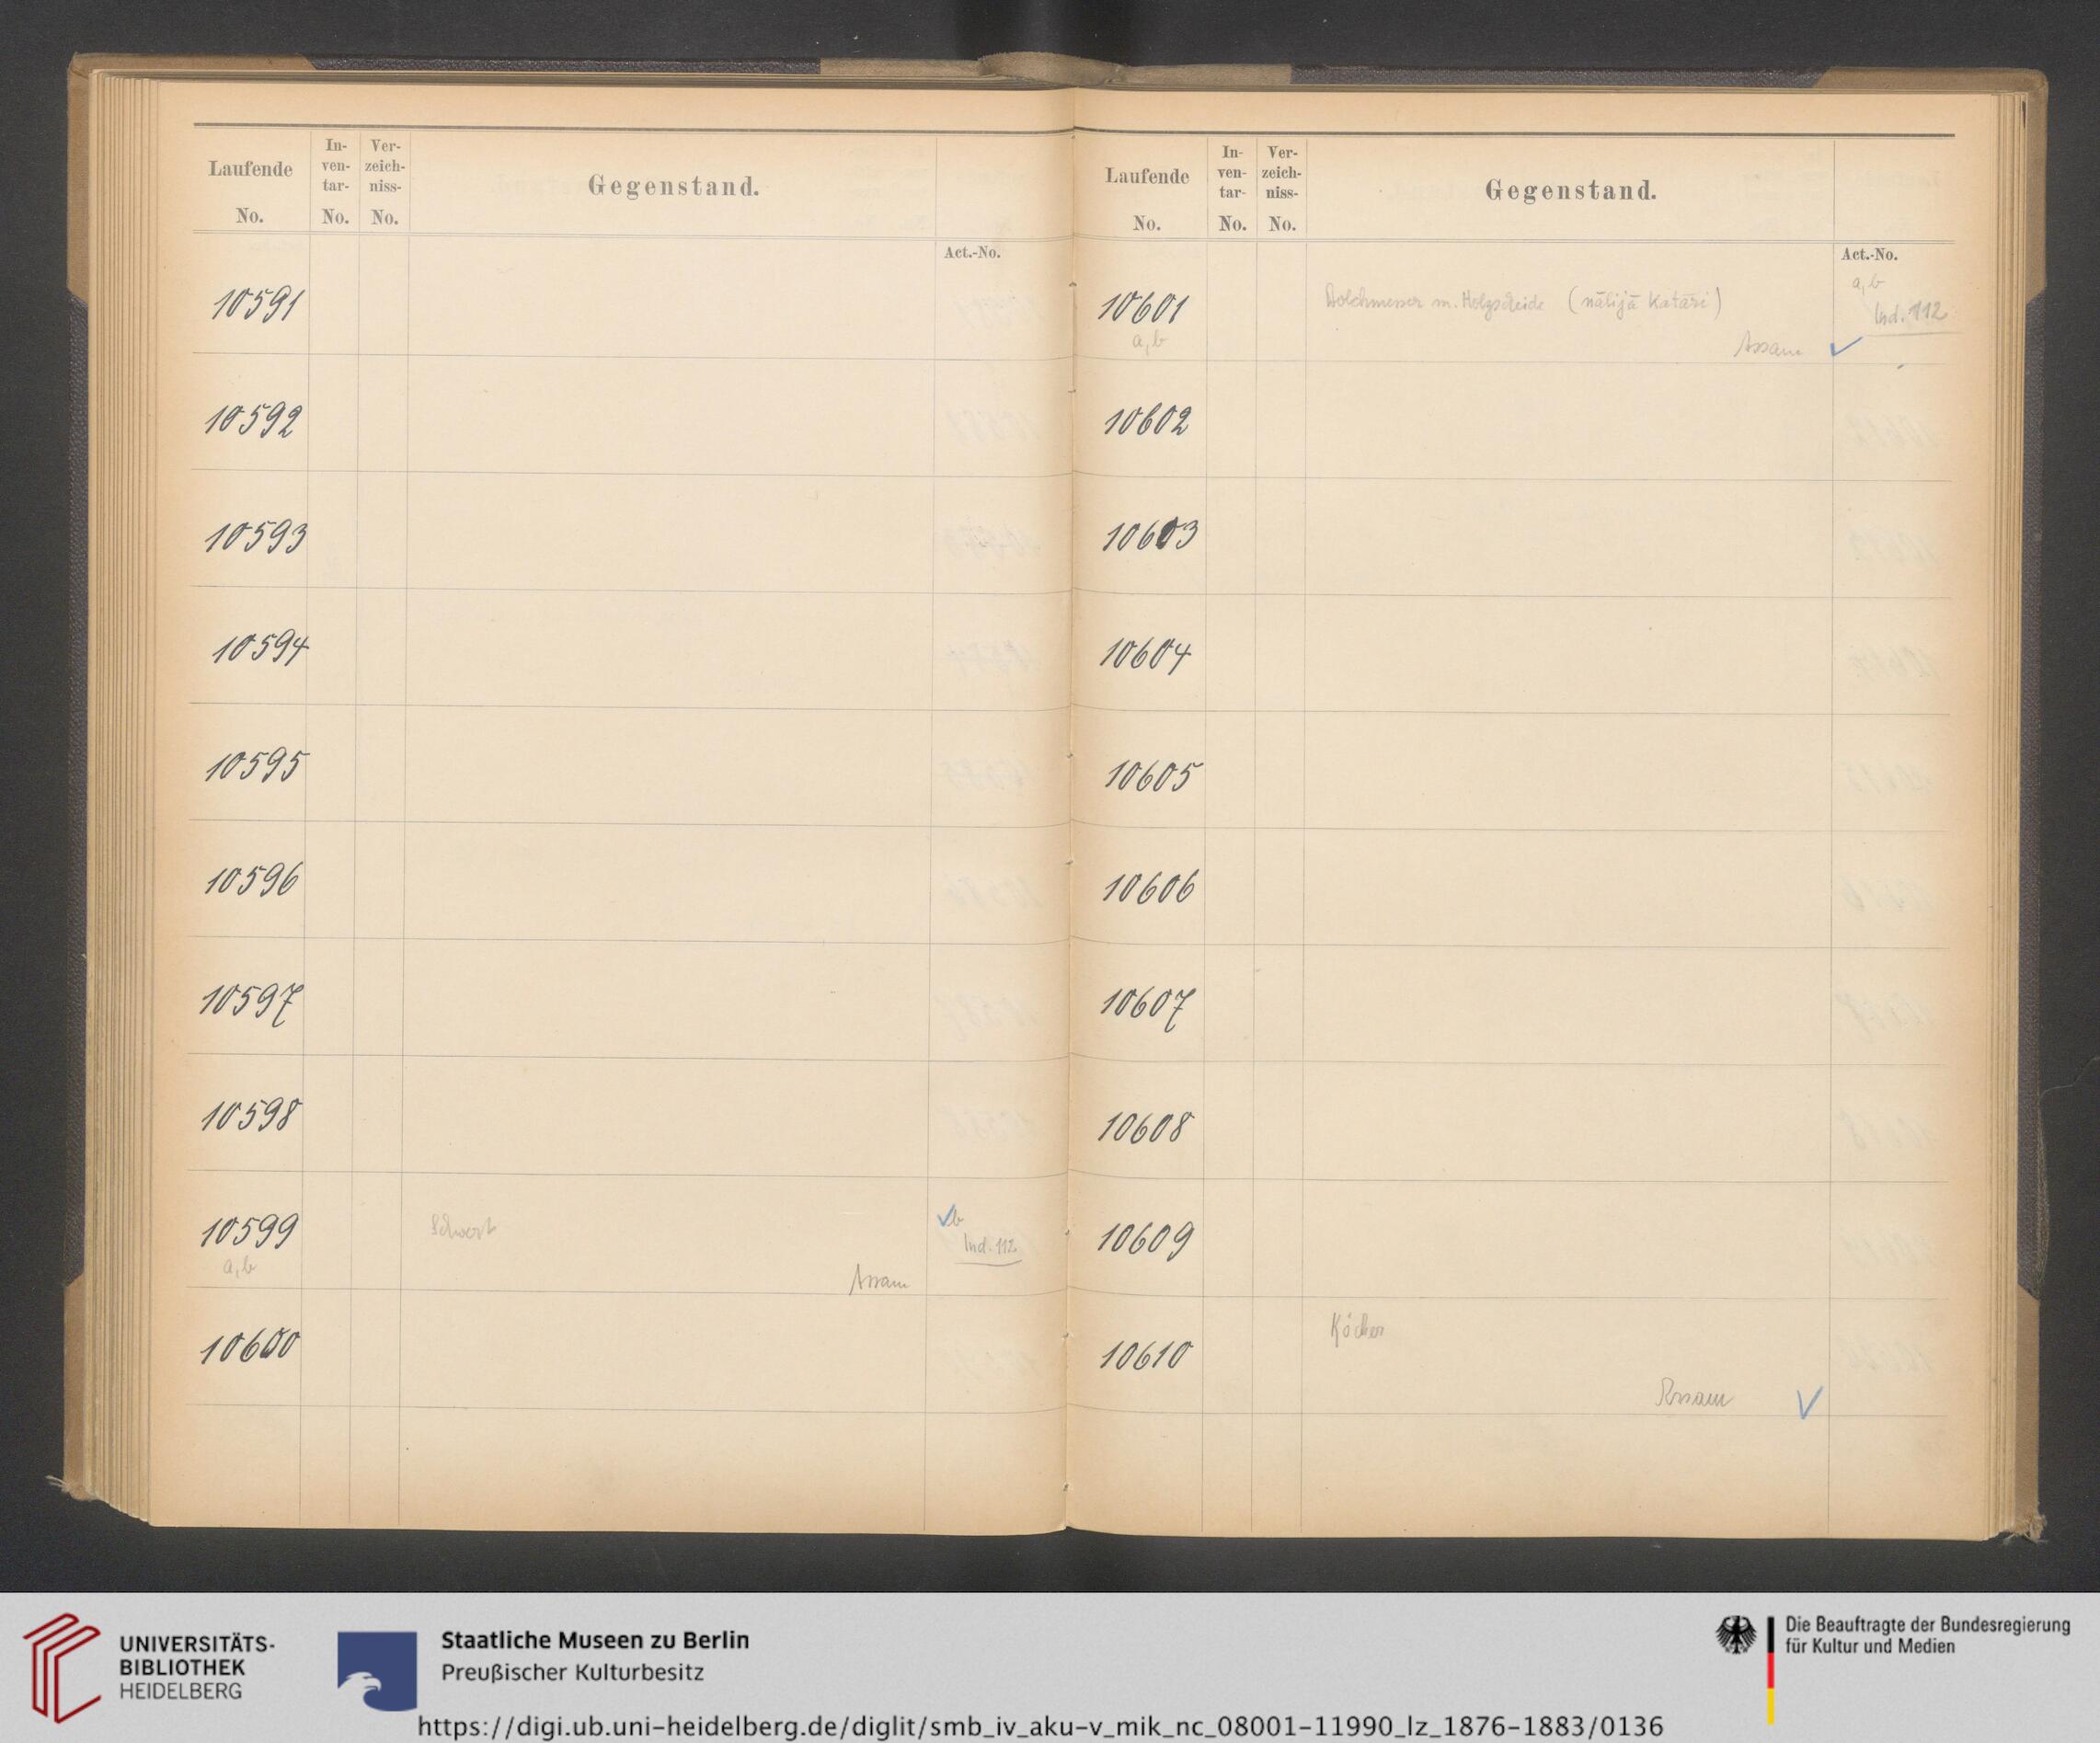 Laufende No. In-ven-tar-No. Ver-zeich-niss-No. Gegenstand.
Act.-No.
10591
10592
10593
10594
10595
10596
10597
10598
10599 Schwert b
a, b Ind. 112
Assam
10600
Laufende No. In-ven-tar-No. Ver-zeich-niss-No. Gegenstand.
Act.-No.
10601 Dolchmesser m. Holzscheide (nālijā Katāri) a, b
a, b Ind. 112
Assam
10602
10603
10604
10605
10606
10607
10608
10609
10610 Köcher
Assam
UNIVERSITÄTS-
BIBLIOTHEK
HEIDELBERG
Staatliche Museen zu Berlin
Preußischer Kulturbesitz
Die Beauftragte der Bundesregierung
für Kultur und Medien
https://digi.ub.uni-heidelberg.de/diglit/smb_iv_aku-v_mik_nc_08001-11990_lz_1876-1883/0136